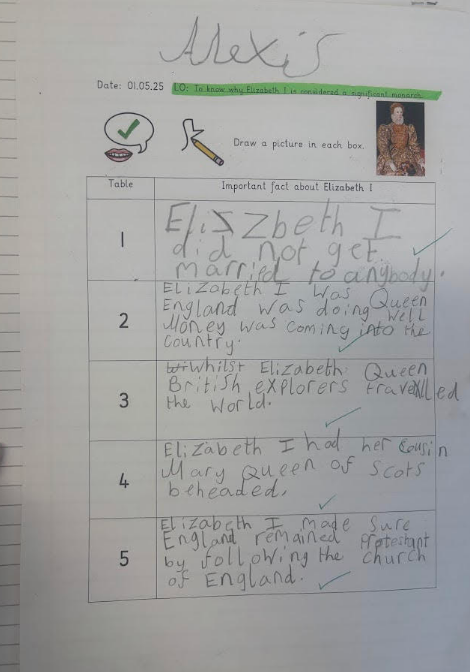 Alexis
Date: 01.05.25 LO: To know why Elizabeth I is considered a significant monarch.
Draw a picture in each box.
Table Important fact about Elizabeth I
1
Elizzbeth I
did not get
married to anybody.
2
Elizabeth I was Queen
England was doing well
Money was coming into the
country.
3
whilst Elizabeth Queen
British explorers travelled
the world.
4
Elizabeth I had her cousin
Mary Queen of Scots
beheaded.
5
Elizabeth I made sure
England remained Protestant
by following the church
of England.